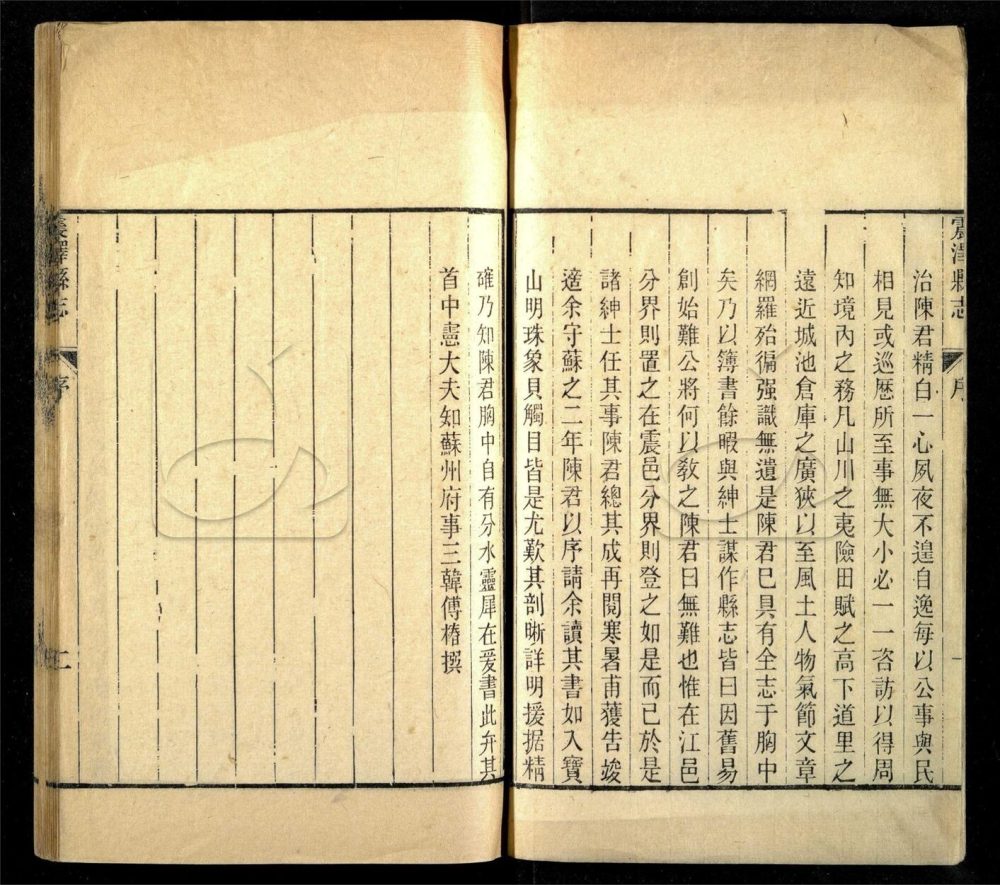 震澤縣志
序
一
治陳君精白一心夙夜不遑自逸每以公事與民
相見或巡歷所至事無大小必一一咨訪以得周
知境內之務凡山川之夷險田賦之高下道里之
遠近城池倉庫之廣狹以至風土人物氣節文章
網羅殆徧强識無遺是陳君已具有全志于胸中
矣乃以簿書餘暇與紳士謀作縣志皆曰因舊易
創始難公將何以敎之陳君曰無難也惟在江邑
分界則置之在震邑分界則登之如是而已於是
諸紳士任其事陳君總其成再閱寒暑甫獲告竣
適余守蘇之二年陳君以序請余讀其書如入寶
山明珠象貝觸目皆是尤歎其剖晰詳明援据精
確乃知陳君胸中自有分水靈犀在爰書此弁其
首中憲大夫知蘇州府事三韓傅椿撰
震澤縣志
序
二